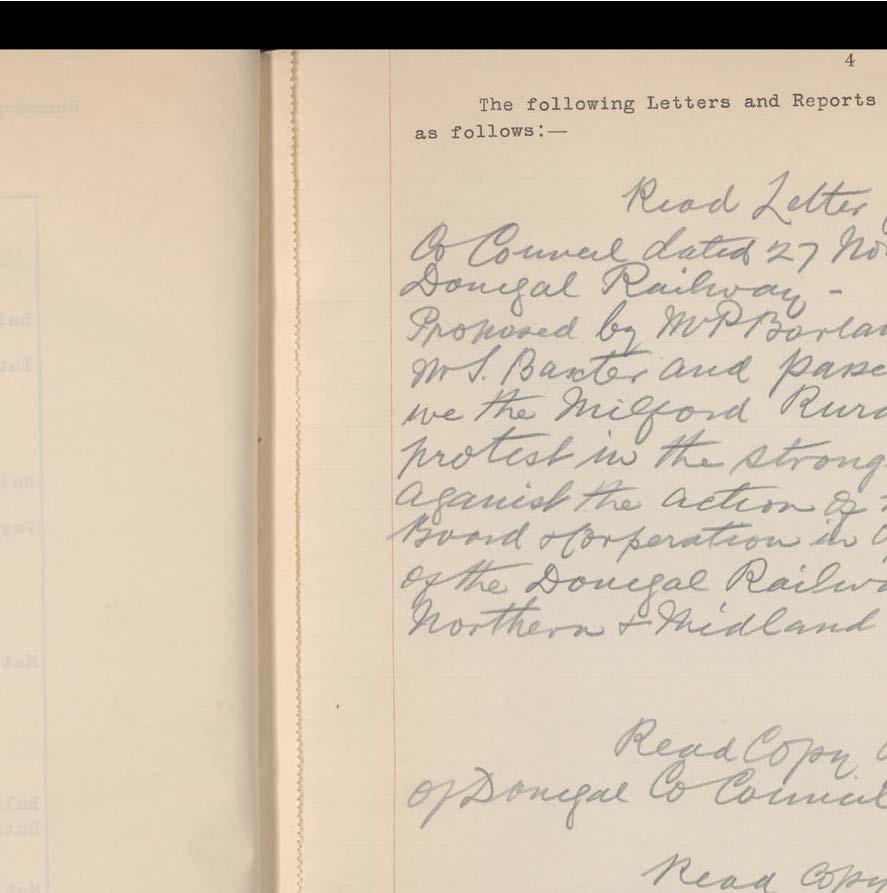 4
The following Letters and Reports
as follows:—
Read Letter
Co Council dated 27 Nov
Donegal Railway -
Proposed by Mr P Borlan
Mr S. Baxter and passe
we the Milford Rura
protest in the strong
aganist the action of
Board & Corperation in
of the Donegal Railwa
Northern & Midland
Read Copy
of Donegal Co Council
Read Copy